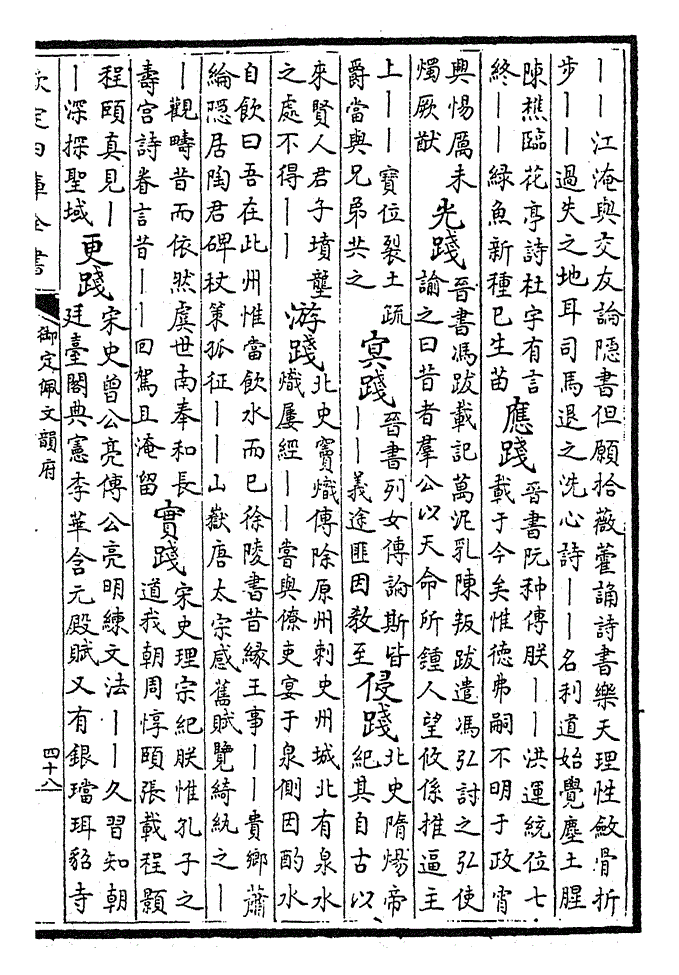 ——江淹與交友論隱書但願拾薇藿誦詩書樂天理性斂骨折
步——過失之地耳司馬退之洗心詩——名利道始覺塵土腥
陳樵臨花亭詩杜宇有言
終——綠魚新種已生苗
應踐
晉書阮种傳朕——洪運統位七
載于今矣惟德弗嗣不明于政宵
興惕厲未
燭厥猷
光踐
晉書馮跋載記萬泥乳陳叛跋遣馮弘討之弘使
諭之曰昔者羣公以天命所鍾人望攸係推逼主
上——寶位裂土疏
爵當與兄弟共之
冥踐
晉書列女傳論斯皆
——義途匪因教至
侵踐
北史隋煬帝
紀其自古以
來賢人君子墳壟
之處不得——
游踐
北史竇熾傳除原州刺史州城北有泉水
熾屢經——嘗與僚吏宴于泉側因酌水
自飲曰吾在此州惟當飲水而已徐陵書昔緣王事——貴鄉蕭
綸隱居陶君碑杖策孤征——山嶽唐太宗感舊賦覽綺紈之—
—觀疇昔而依然虞世南奉和長
壽宮詩眷言昔——回駕且淹留
實踐
宋史理宗紀朕惟孔子之
道我朝周惇頤張載程顥
程頤真見—
—深探聖域
更踐
宋史曾公亮傳公亮明練文法——久習知朝
廷臺閣典憲李華含元殿賦又有銀璫珥貂寺
欽定四庫全書
御定佩文韻府
四十八